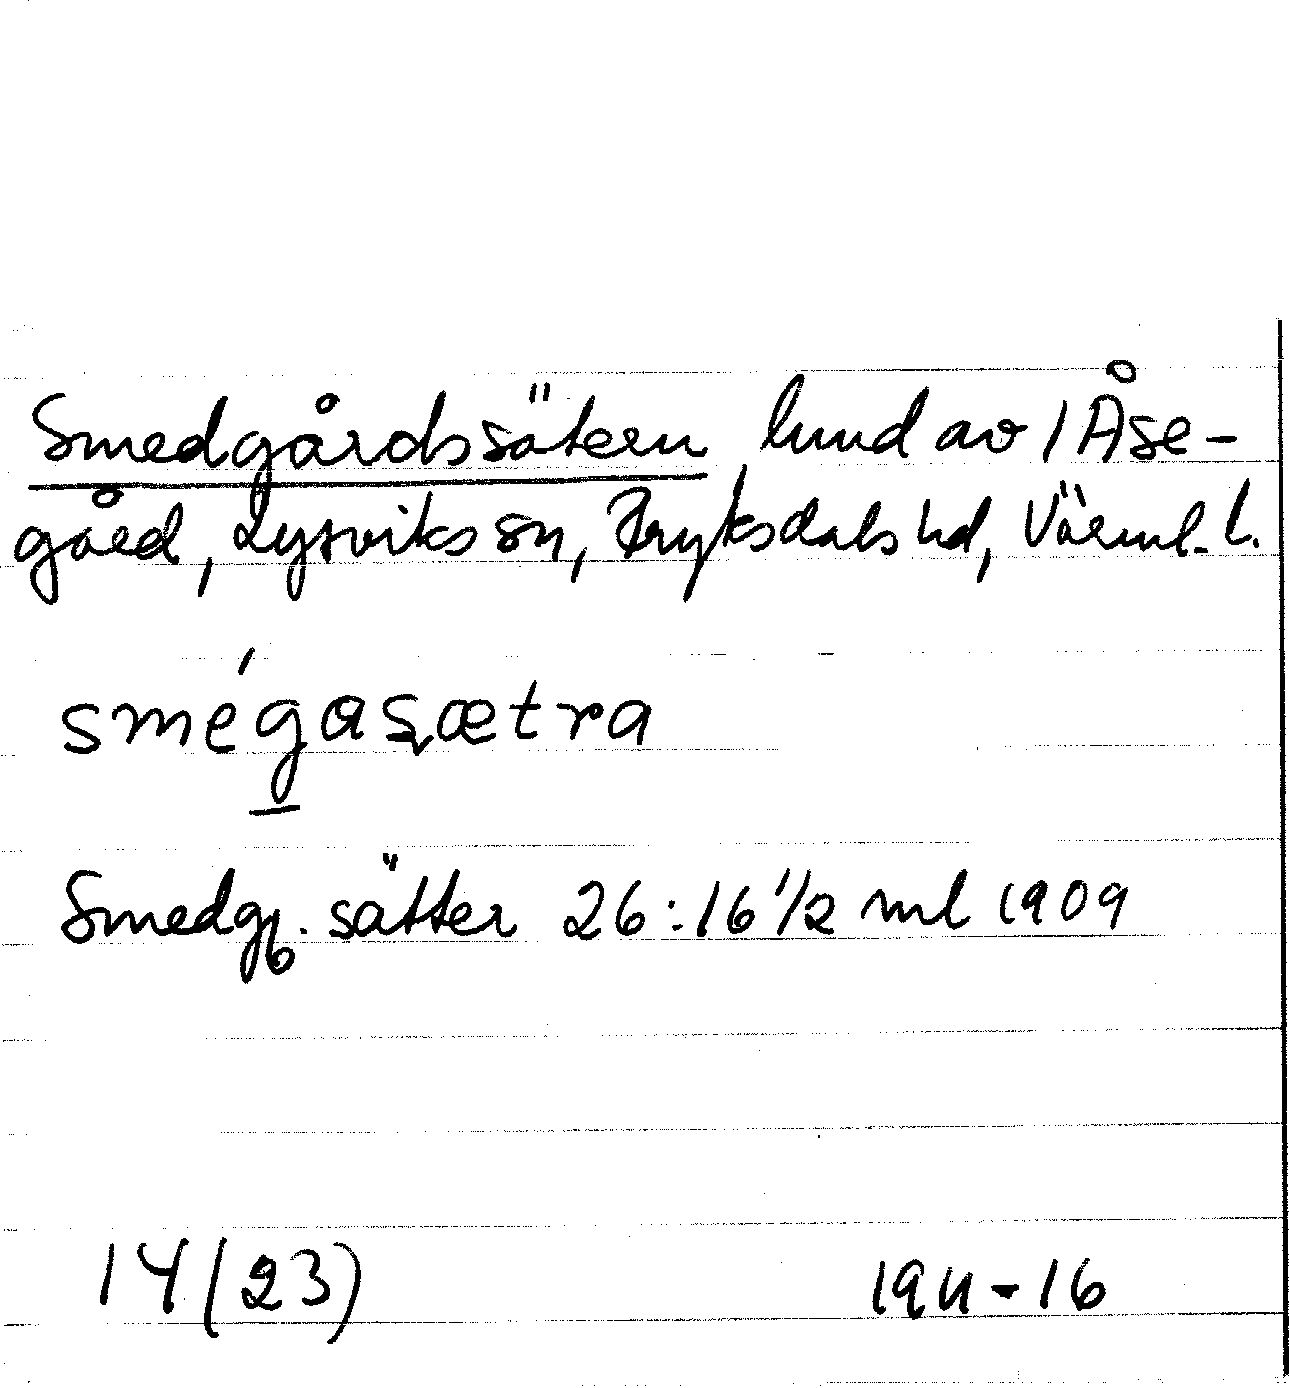 Smedgårdssätern hmd av 1 Åse-
gård, Lysviks sn, Fryksdals hd, Värml. l.
smégasætra
Smedg. sätter 26:16 1/2 ml 1909
14(23)
1911-16